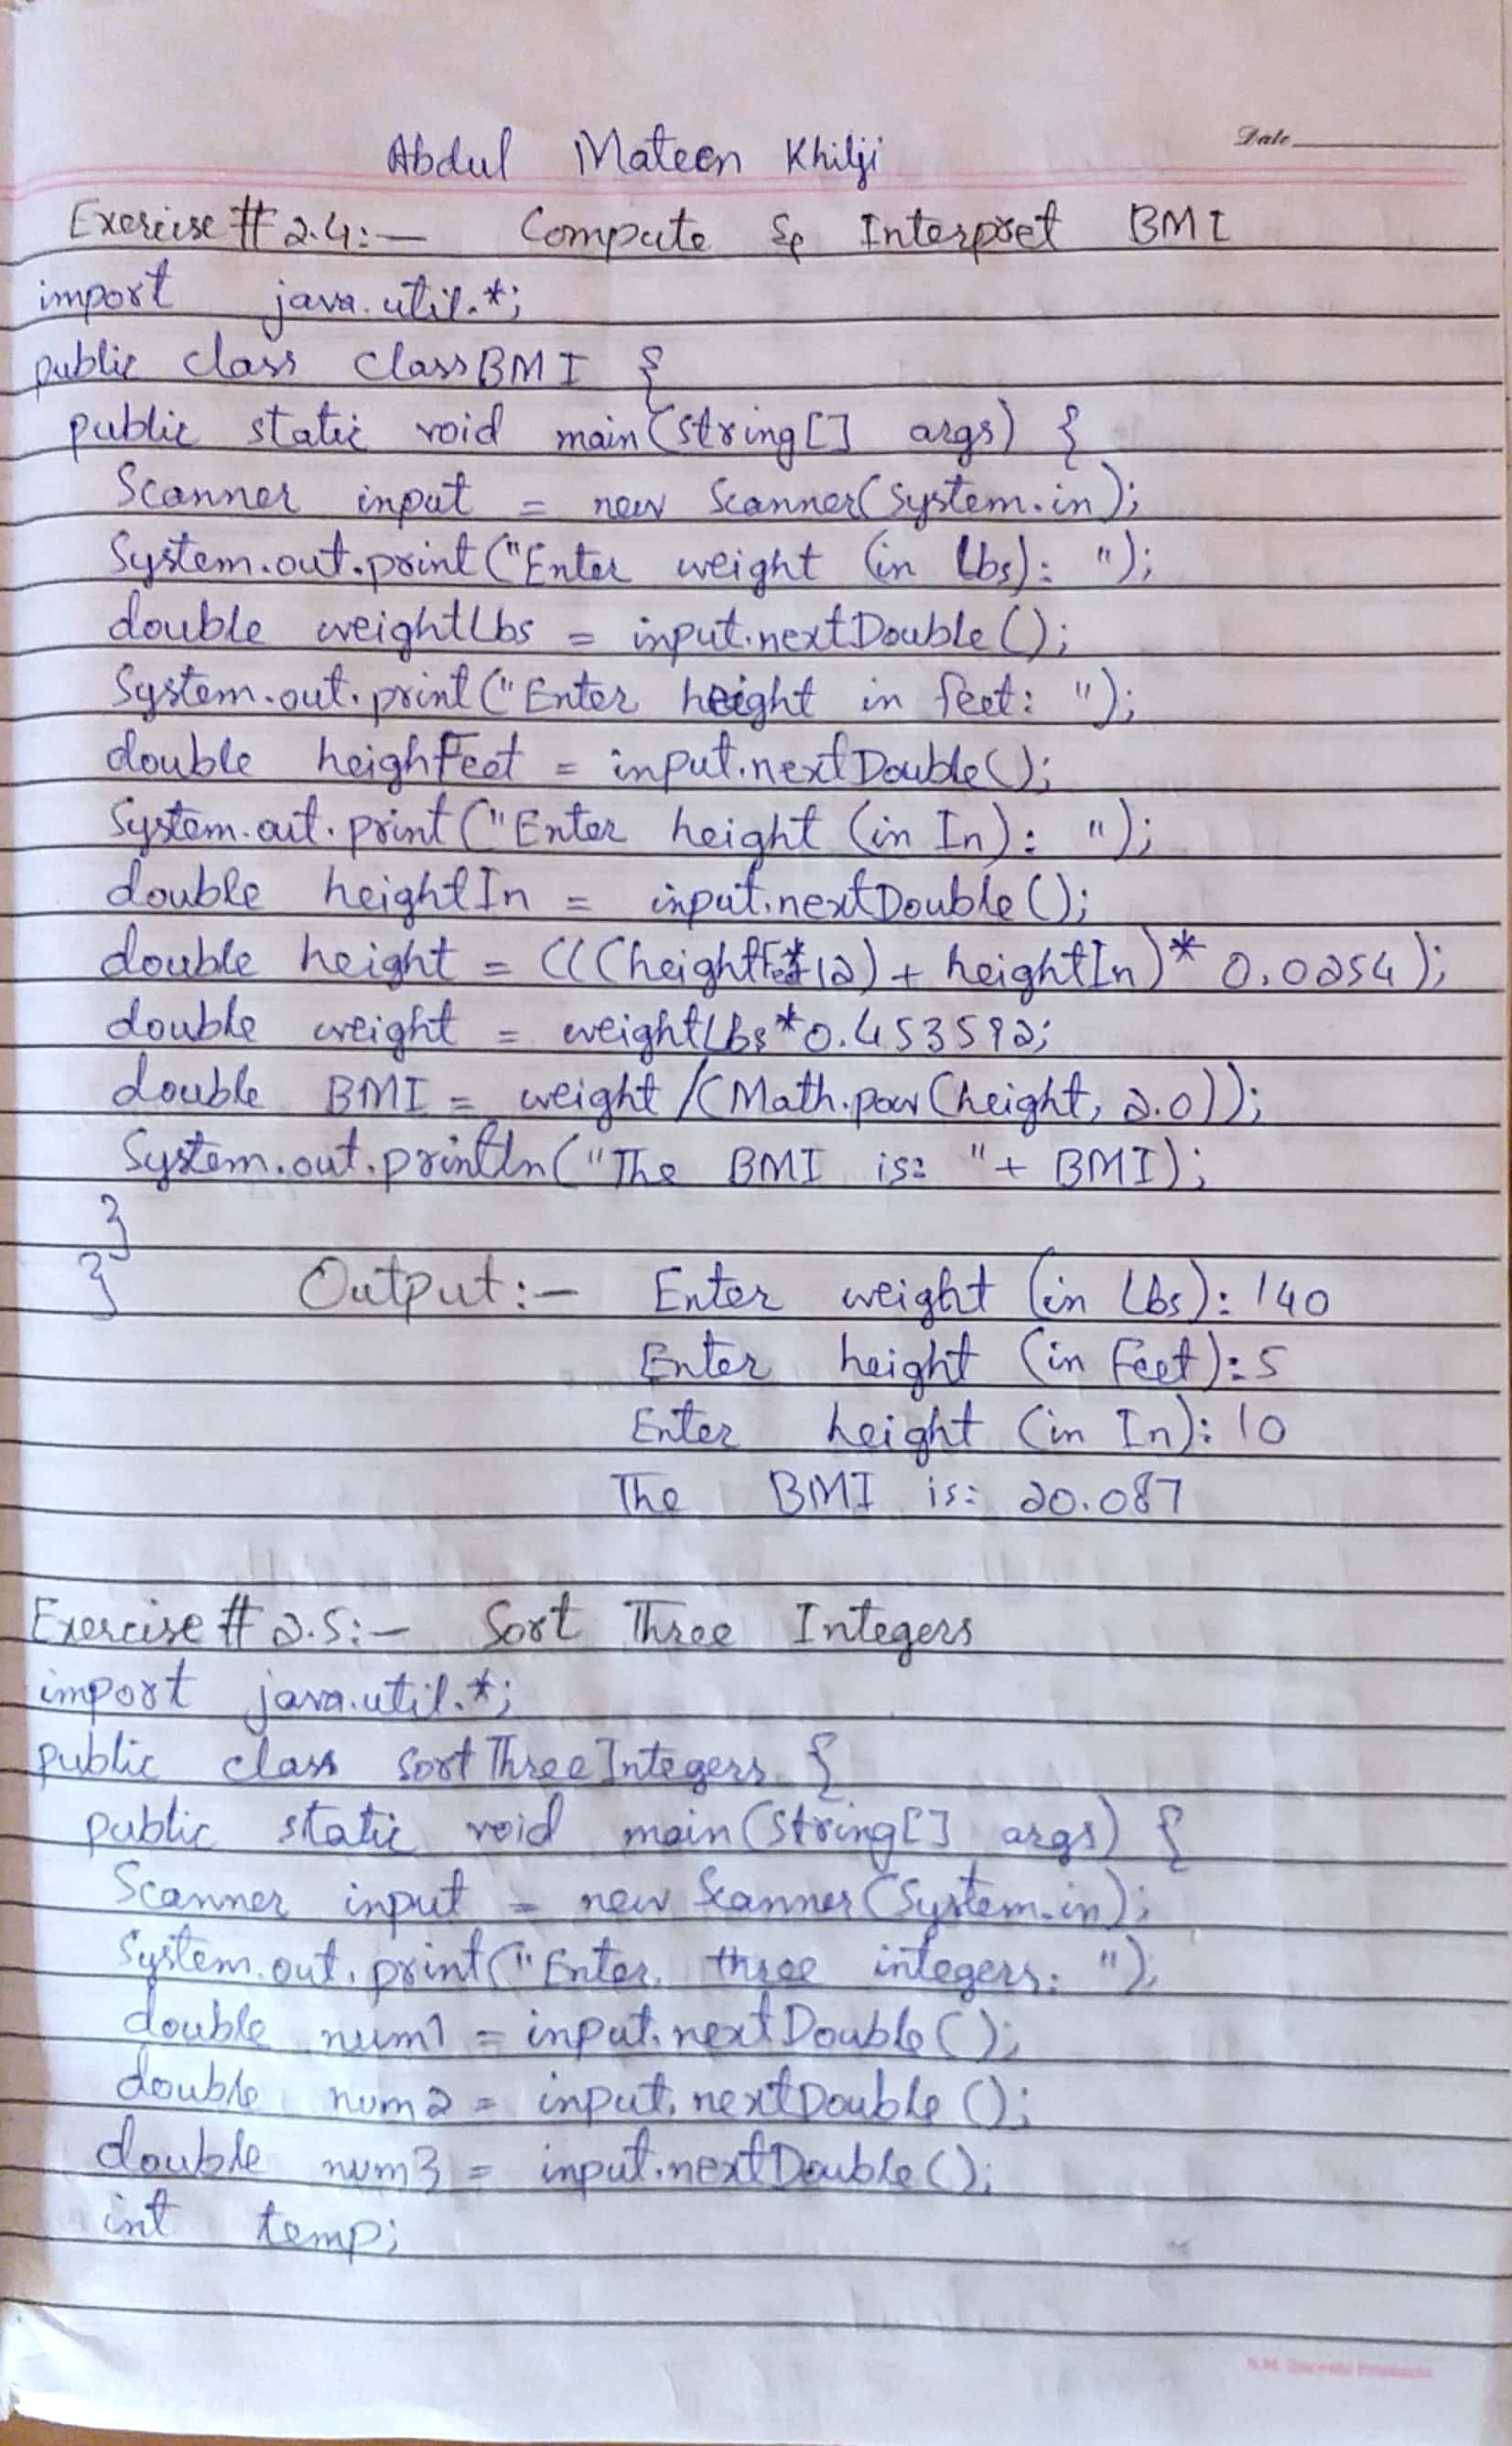 Date
Abdul Mateen Khilji
Exercise # 2.4:— Compute & Interpret BMI
import java.util.*;
public class ClassBMI {
public static void main(String[] args) {
Scanner input = new Scanner(System.in);
System.out.print("Enter weight (in Lbs): ");
double weightLbs = input.nextDouble();
System.out.print("Enter height in feet: ");
double heighFeet = input.nextDouble();
System.out.print("Enter height (in In): ");
double heightIn = input.nextDouble();
double height = (((heightFeet*12) + heightIn)* 0.0254);
double weight = weightLbs*0.453592;
double BMI = weight /(Math.pow(height, 2.0));
System.out.println("The BMI is: "+ BMI);
}
} Output:— Enter weight (in Lbs): 140
Enter height (in Feet): 5
Enter height (in In): 10
The BMI is: 20.087
Exercise # 2.5:— Sort Three Integers
import java.util.*;
public class SortThreeIntegers {
public static void main(String[] args) {
Scanner input = new Scanner(System.in);
System.out.print("Enter three integers: ");
double num1 = input.nextDouble();
double num2 = input.nextDouble();
double num3 = input.nextDouble();
int temp;